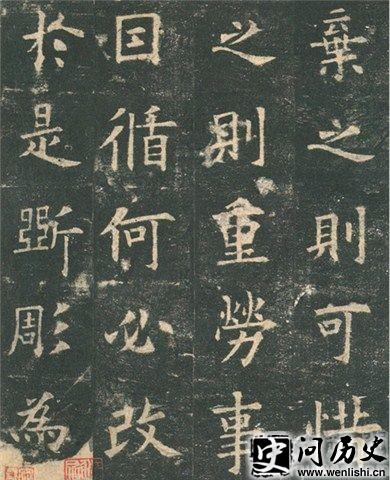 棄之則可惜
之則重勞事
因循何必改
於是斲彫為
史
问历史
www.wenlishi.cn